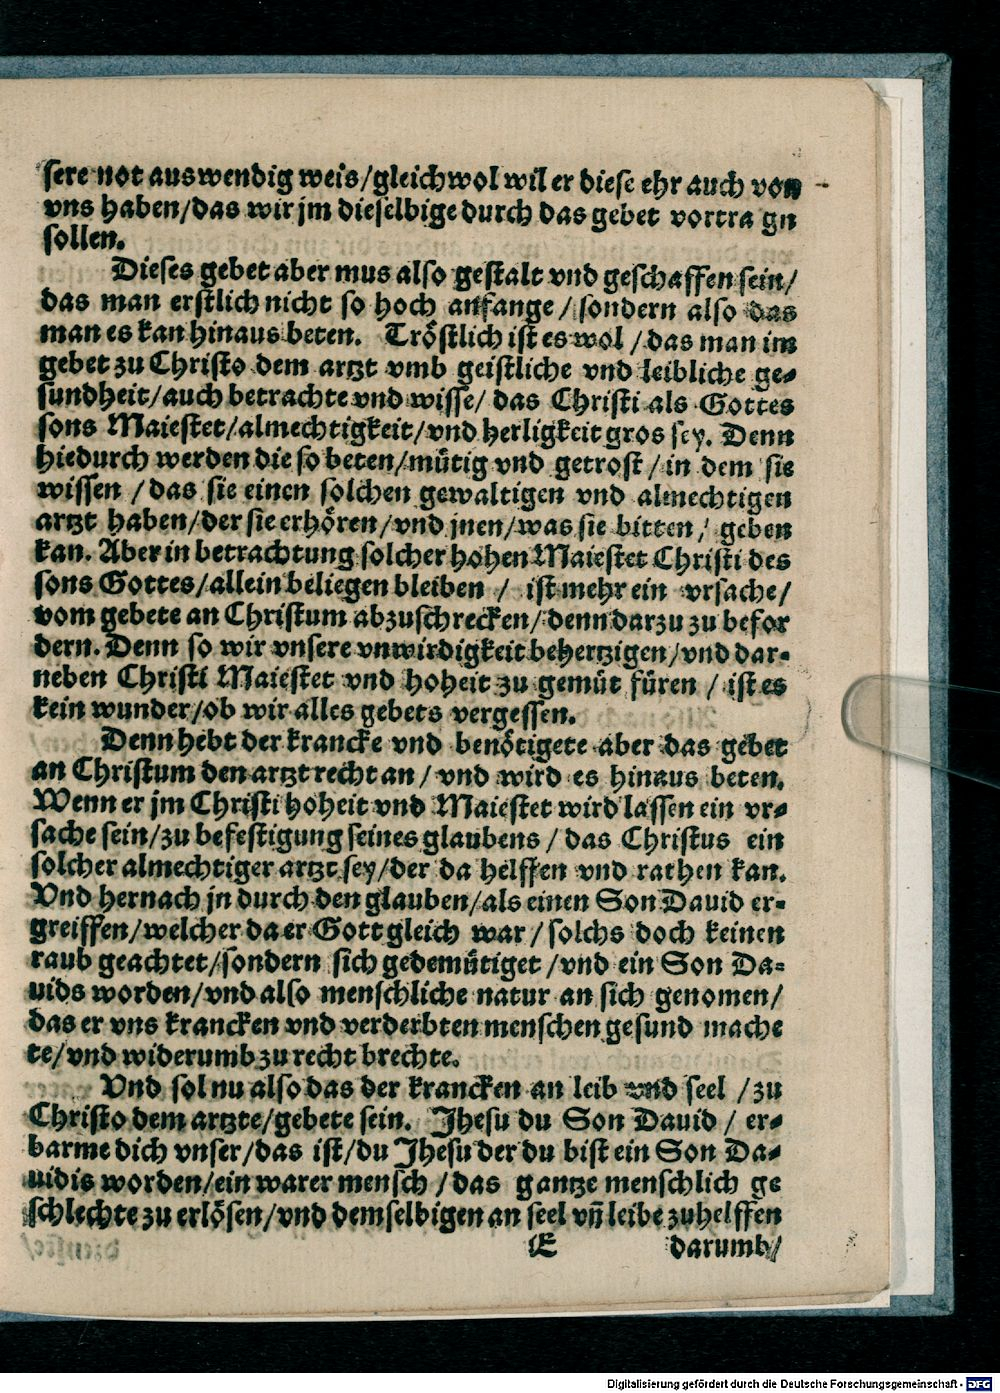 sere not auswendig weis/gleichwol wil er diese ehr auch von
vns haben/das wir jm dieselbige durch das gebet vortra gn
sollen.
Dieses gebet aber mus also gestalt vnd geschaffen sein/
das man erstlich nicht so hoch anfange/sondern also das
man es kan hinaus beten. Tröstlich ist es wol/das man im
gebet zu Christo dem artzt vmb geistliche vnd leibliche ge-
sundheit/auch betrachte vnd wisse/ das Christi als Gottes
sons Maiestet/almechtigkeit/vnd herligkeit gros sey. Denn
hiedurch werden die so beten/mütig vnd getrost/in dem sie
wissen/das sie einen solchen gewaltigen vnd almechtigen
artzt haben/der sie erhören/vnd jnen/was sie bitten/ geben
kan. Aber in betrachtung solcher hohen Maiestet Christi des
sons Gottes/allein beliegen bleiben / ist mehr ein vrsache/
vom gebete an Christum abzuschrecken/denn darzu zu befor
dern. Denn so wir vnsere vnwirdigkeit behertzigen/vnd dar-
neben Christi Maiestet vnd hoheit zu gemüt füren / ist es
kein wunder/ob wir alles gebets vergessen.
Denn hebt der krancke vnd benötigete aber das gebet
an Christum den artzt recht an/vnd wird es hinaus beten.
Wenn er jm Christi hoheit vnd Maiestet wird lassen ein vr-
sache sein/zu befestigung seines glaubens/das Christus ein
solcher almechtiger artzt sey/der da helffen vnd rathen kan.
Vnd hernach jn durch den glauben/als einen Son Dauid er-
greiffen/welcher da er Gott gleich war/solchs doch keinen
raub geachtet/sondern sich gedemütiget/vnd ein Son Da-
uids worden/vnd also menschliche natur an sich genomen/
das er vns krancken vnd verderbten menschen gesund mache
te/vnd widerumb zu recht brechte.
Vnd sol nu also das der krancken an leib vnd seel /zu
Christo dem artzte/gebete sein. Jhesu du Son Dauid / er-
barme dich vnser/das ist/du Jhesu der du bist ein Son Da-
uidis worden/ein warer mensch/das gantze menschlich ge
schlechte zu erlösen/vnd demselbigen an seel vñ leibe zuhelffen
E darumb/
Digitalisierung gefördert durch die Deutsche Forschungsgemeinschaft - DFG